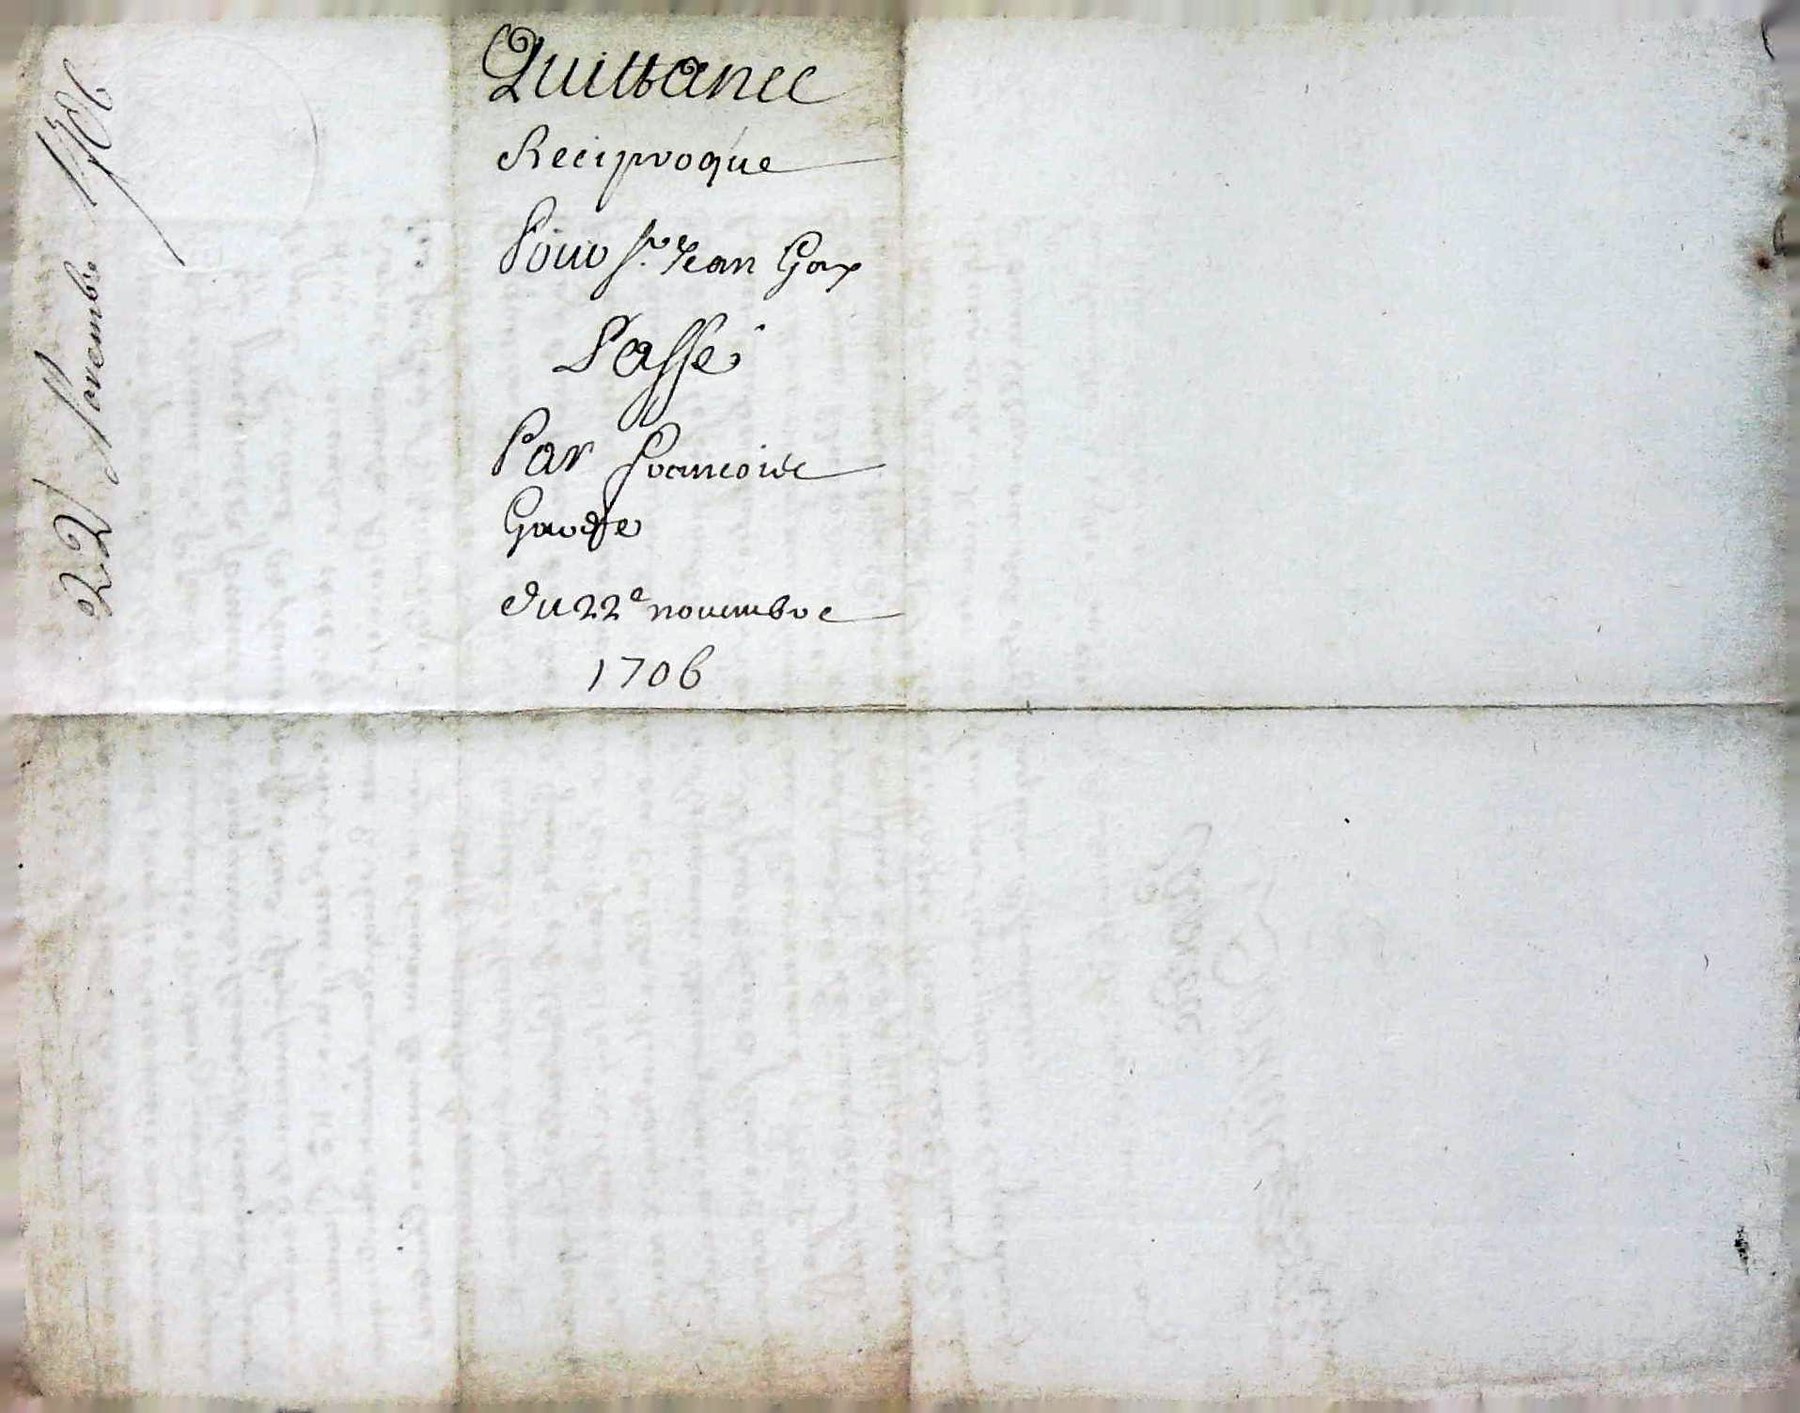 Quittance
Reciproque
Pour Sr. Jean Gax
Passé
Par Francoise
Garde
du 22e novembre
1706
22 Novembre 1706